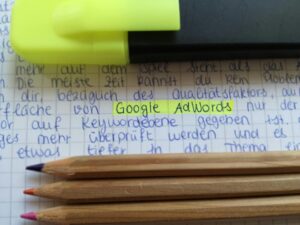 mehr auf dem Spiel steht als das
Die meiste Zeit kannst du kein
dir, bezüglich des Qualitätsfaktors, auf
fläche von Google AdWords nur der
or auf Keywordebene gegeben ist.
ges mehr überprüft werden und es
etwas tiefer in das Thema